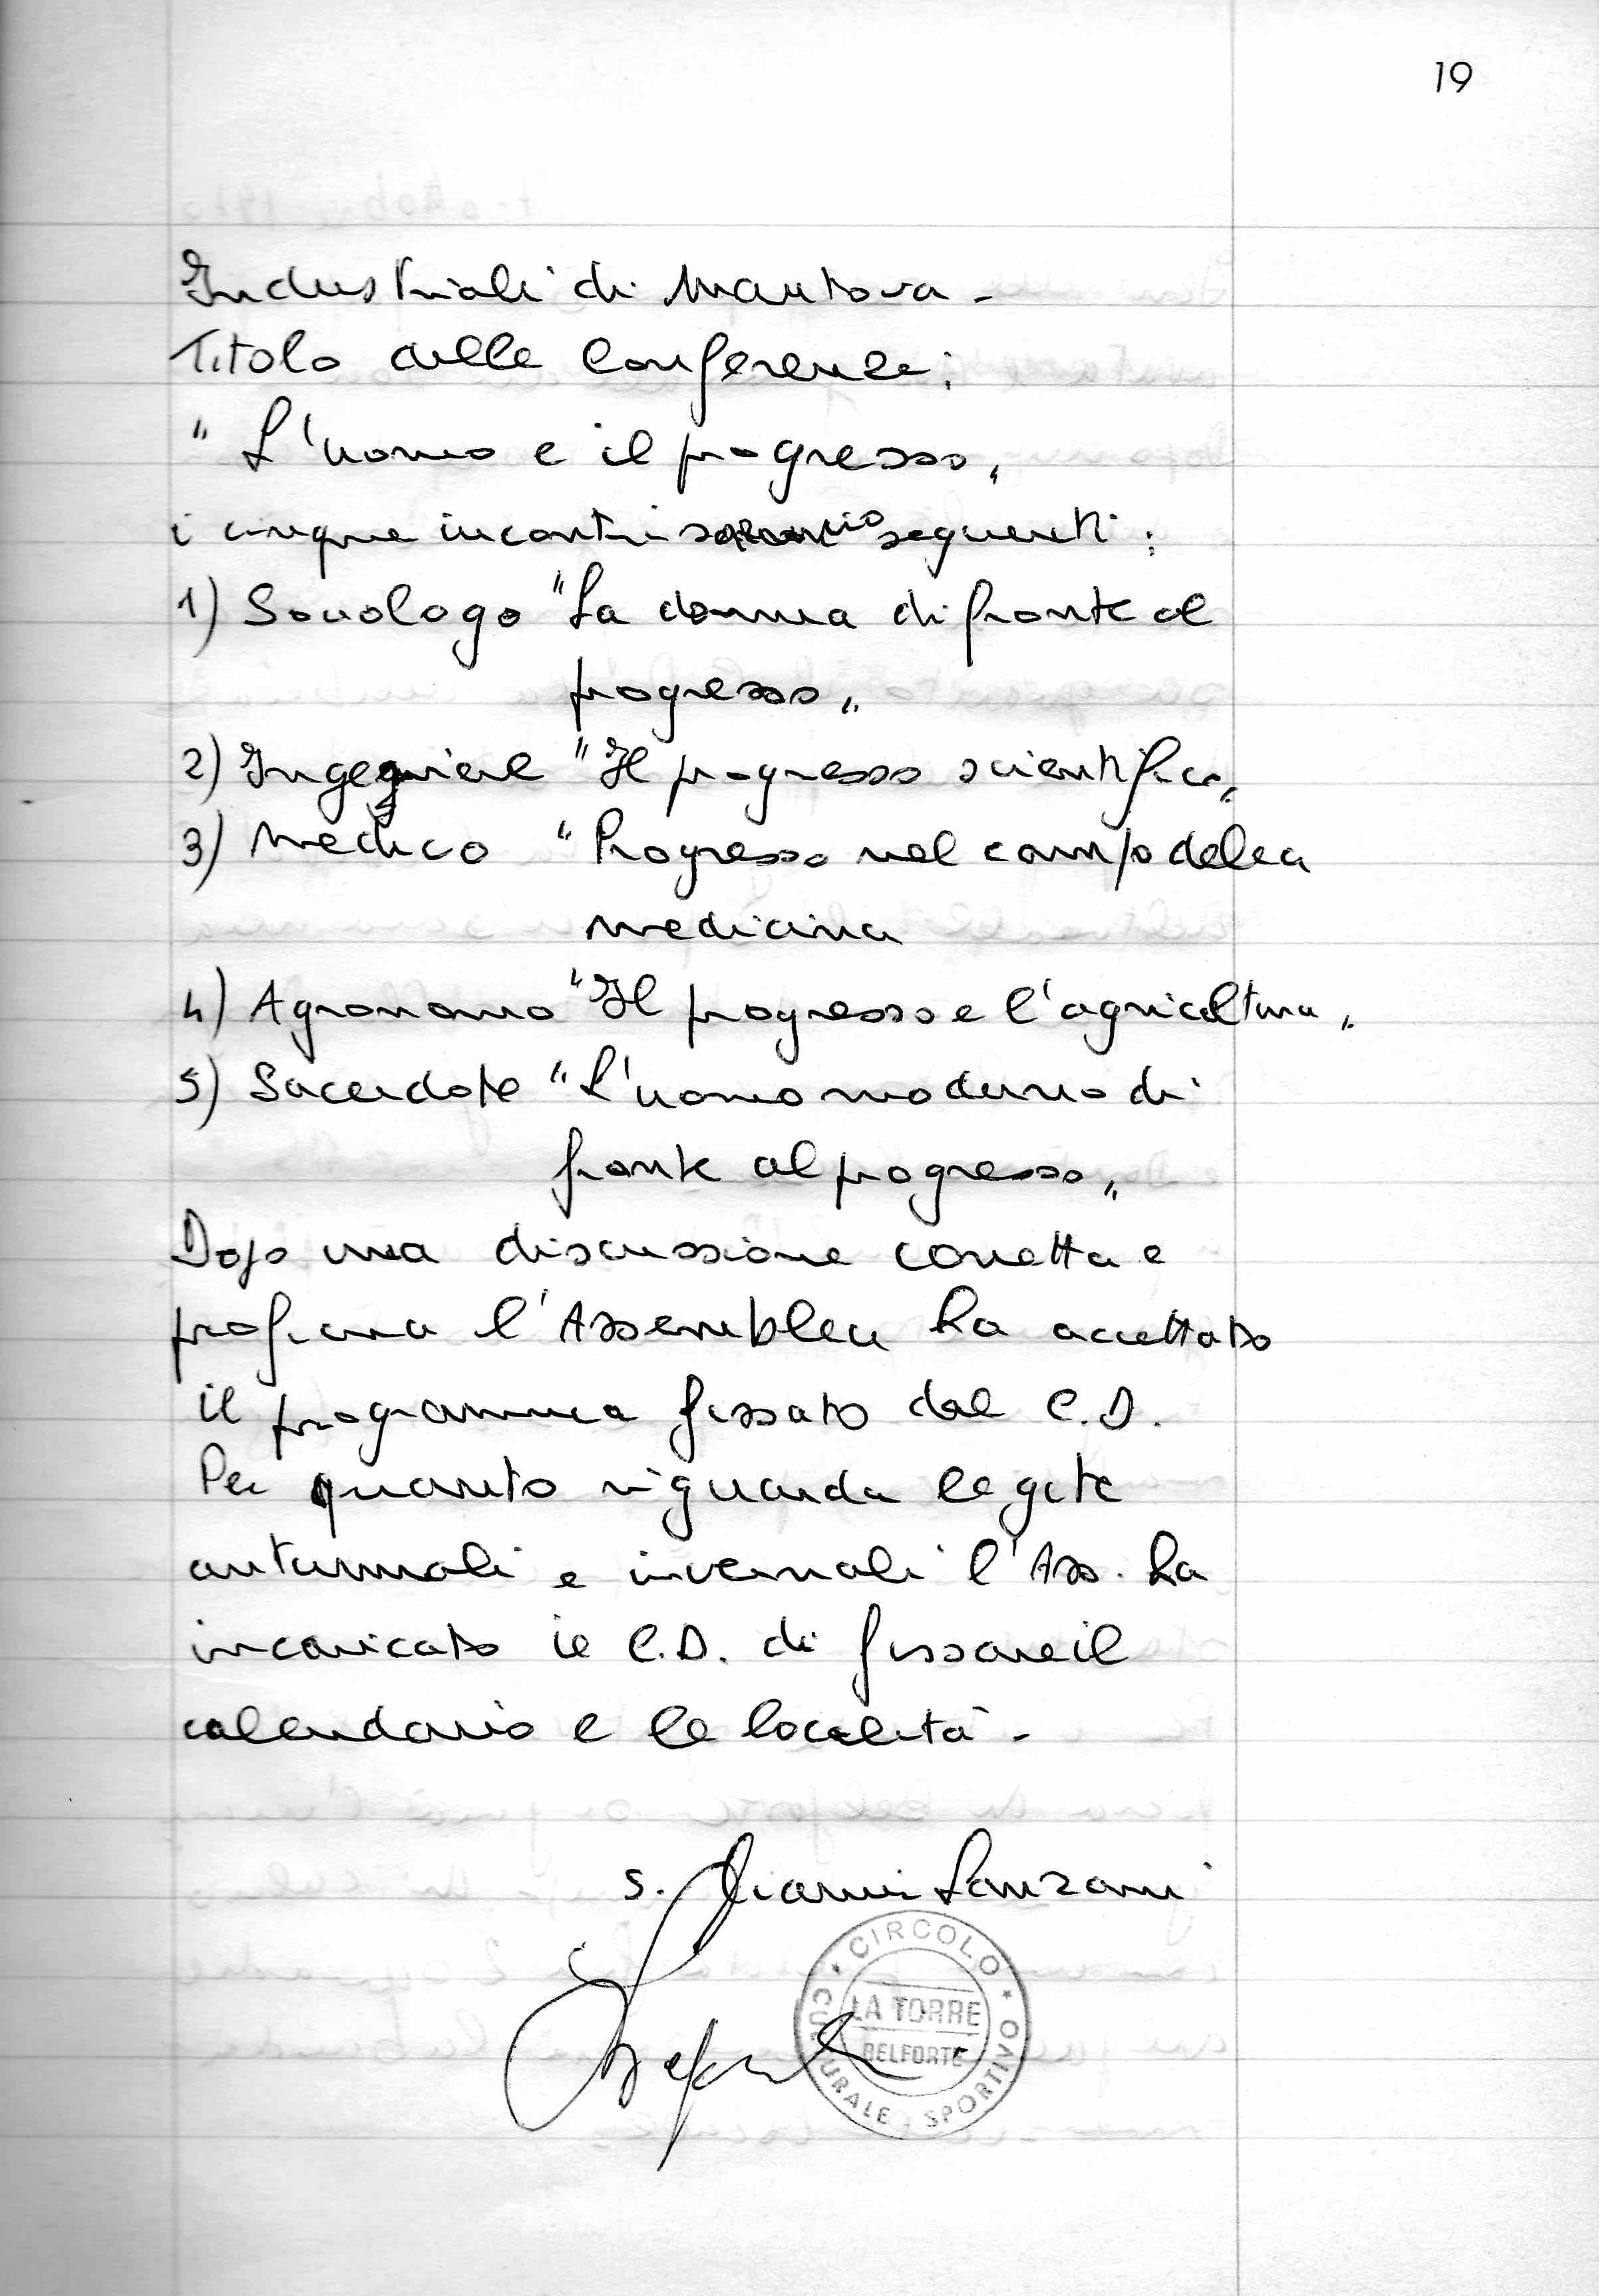 19
Industriali di Mantova -
Titolo delle Conferenze:
" L'uomo e il progresso "
i cinque incontri seguenti :
1) Sociologo "La donna di fronte al
progresso "
2) Ingegniere "Il progresso scientifico "
3) Medico " Progresso nel campo della
medicina
4) Agronomo "Il progresso e l'agricoltura "
5) Sacerdote "L'uomo moderno di
fronte al progresso "
Dopo una discussione corretta e
proficua l'Assemblea ha accettato
il programma fissato dal C.D.
Per quanto riguarda le gite
autunnali e invernali l'Ass. ha
incaricato il C.D. di fissare il
calendario e le località -
s. Gianni Lanzani
CIRCOLO
CULTURALE SPORTIVO
LA TORRE
BELFORTE